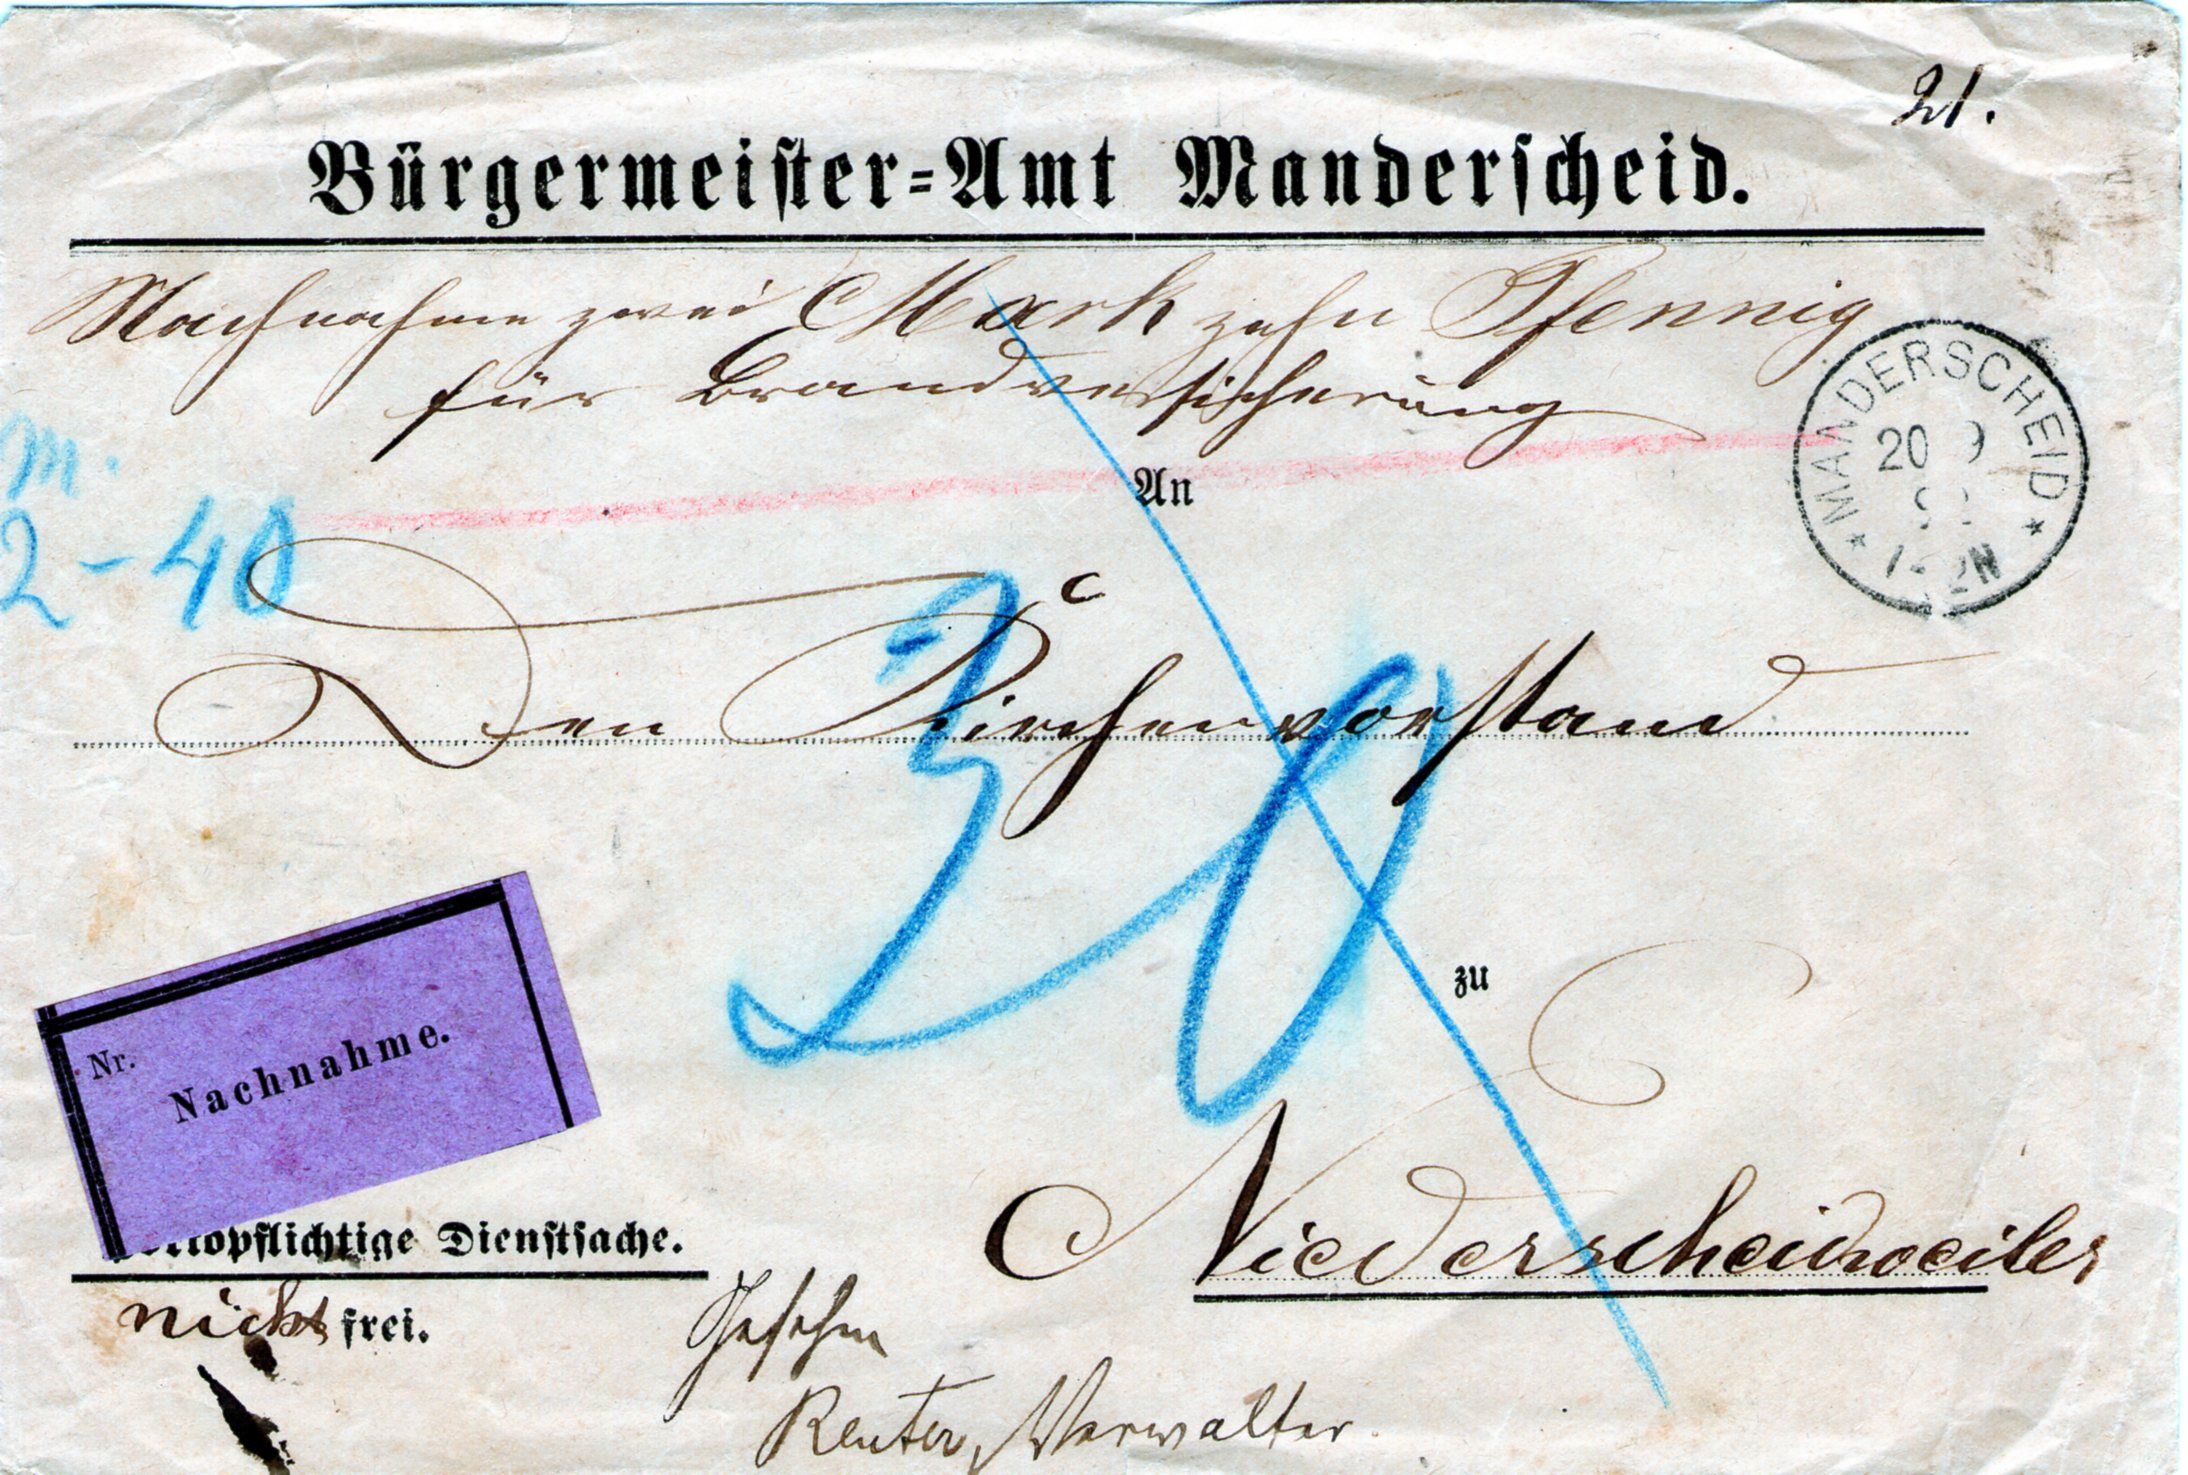 21.
Bürgermeister=Amt Manderscheid.
Nachnahme zwei Mark zehn Pfennig
für Brandversicherung
MANDERSCHEID
20 9
1-2N
M.
2-40
An
Den Kirchenvorstand
30
zu
Nr.
Nachnahme.
Niederscheidweiler
opflichtige Dienstsache.
nicht frei.
Gesehen
Reuter, Verwalter